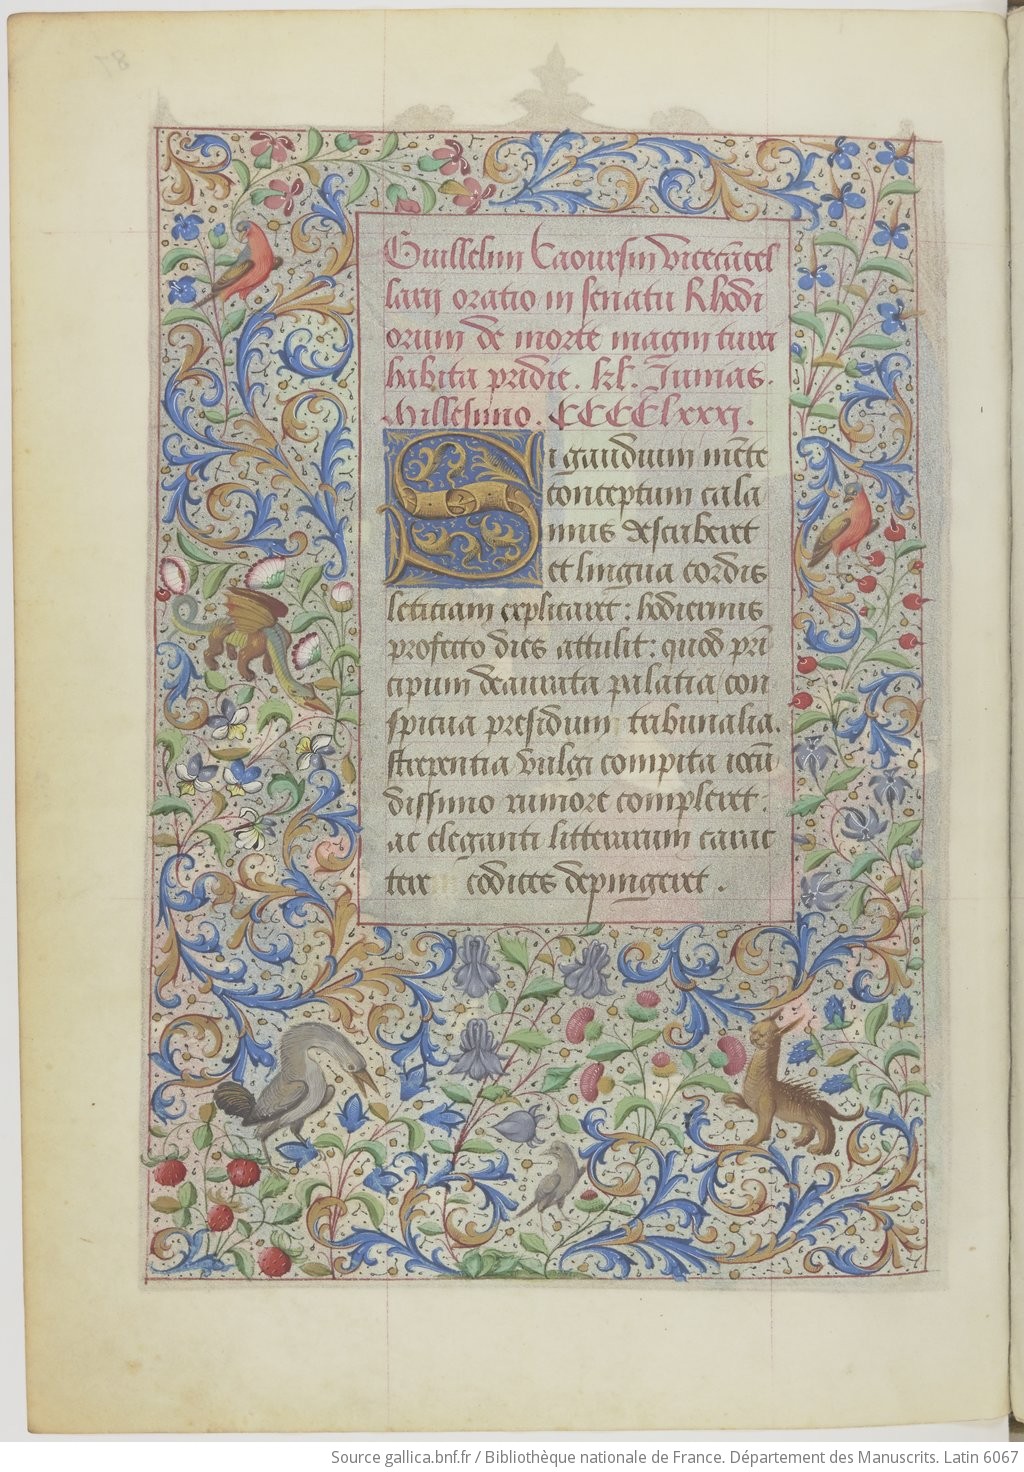 Guillelmi Caoursin vicecãcel
larij oratio in senatu Rhodi
orum de morte magni turci
habita pridie. kl. Junias.
Millesimo. CCCCLxxxj.
Si gaudium mẽte
conceptum cala
mus describeret
et lingua cordis
leticiam explicaret: hodiernus
profecto dies attulit: quod prĩ
cipum deaurata palatia con
spicua presidum tribunalia.
strepentia vulgi compita iocũ
dissimo rumore compleret:
ac eleganti litterarum carac
tere codices depingeret.
Source gallica.bnf.fr / Bibliothèque nationale de France. Département des Manuscrits. Latin 6067